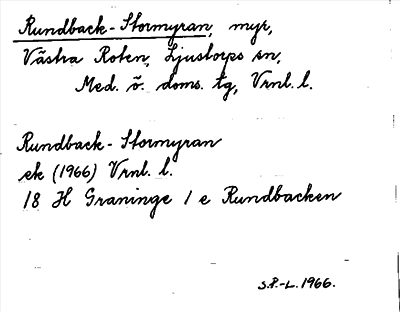 Rundback-Stormyran, myr,
Västra Roten, Ljustorps sn,
Med. ö. doms. tg, Vrnl. l.
Rundback-Stormyran
ek (1966) Vrnl. l.
18 H Graninge 1 e Rundbacken
S.P.-L. 1966.